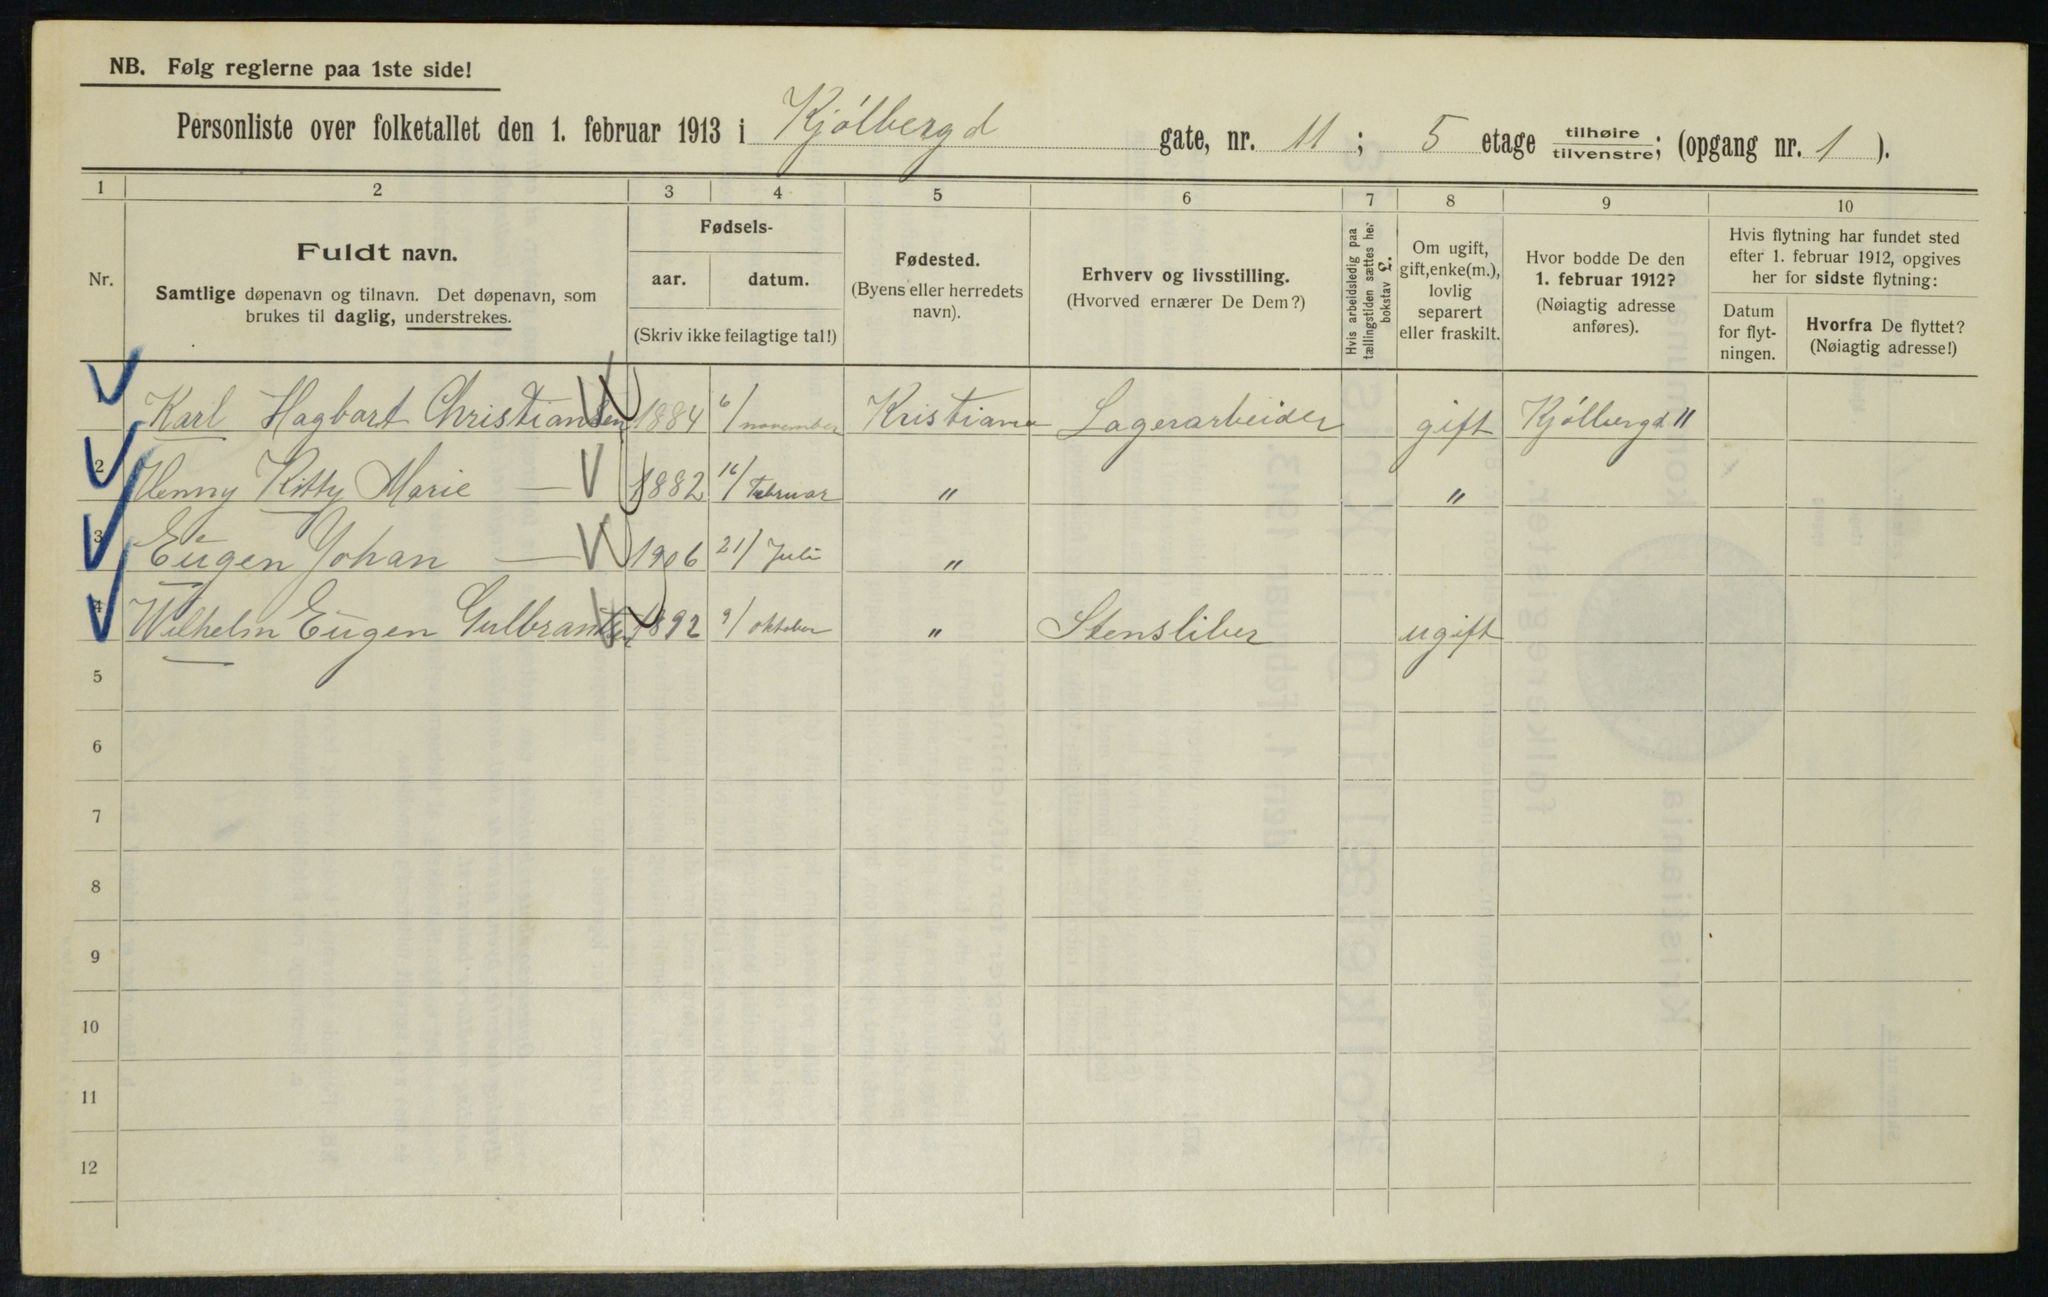 NB. Følg reglerne paa 1ste side!
Personliste over folketallet den 1. februar 1913 i Kjølbergd gate, nr. 11; 5 etage tilhøire/tilvenstre; (opgang nr. 1).
1 2 3 4 5 6 7 8 9 10
Nr.
Fuldt navn.
Samtlige døpenavn og tilnavn. Det døpenavn, som
brukes til daglig, understrekes.
Fødsels-
aar. datum.
(Skriv ikke feilagtige tal!)
Fødested.
(Byens eller herredets
navn).
Erhverv og livsstilling.
(Hvorved ernærer De Dem?)
Hvis arbeidsledig paa
tællingstiden sættes her
bokstav L.
Om ugift,
gift, enke(m.),
lovlig
separert
eller fraskilt.
Hvor bodde De den
1. februar 1912?
(Nøiagtig adresse
anføres).
Hvis flytning har fundet sted
efter 1. februar 1912, opgives
her for sidste flytning:
Datum
for flyt-
ningen.
Hvorfra De flyttet?
(Nøiagtig adresse!)
1 Karl Hagbart Christiansen 1884 6/november Kristiania Lagerarbeider gift Kjølbergd 11
2 Henny Kitty Marie — 1882 16/februar " "
3 Eugen Johan — 1906 21/Juli "
4 Wilhelm Eugen Gulbrantsen 1892 9/oktober " Stensliber ugift
5
6
7
8
9
10
11
12